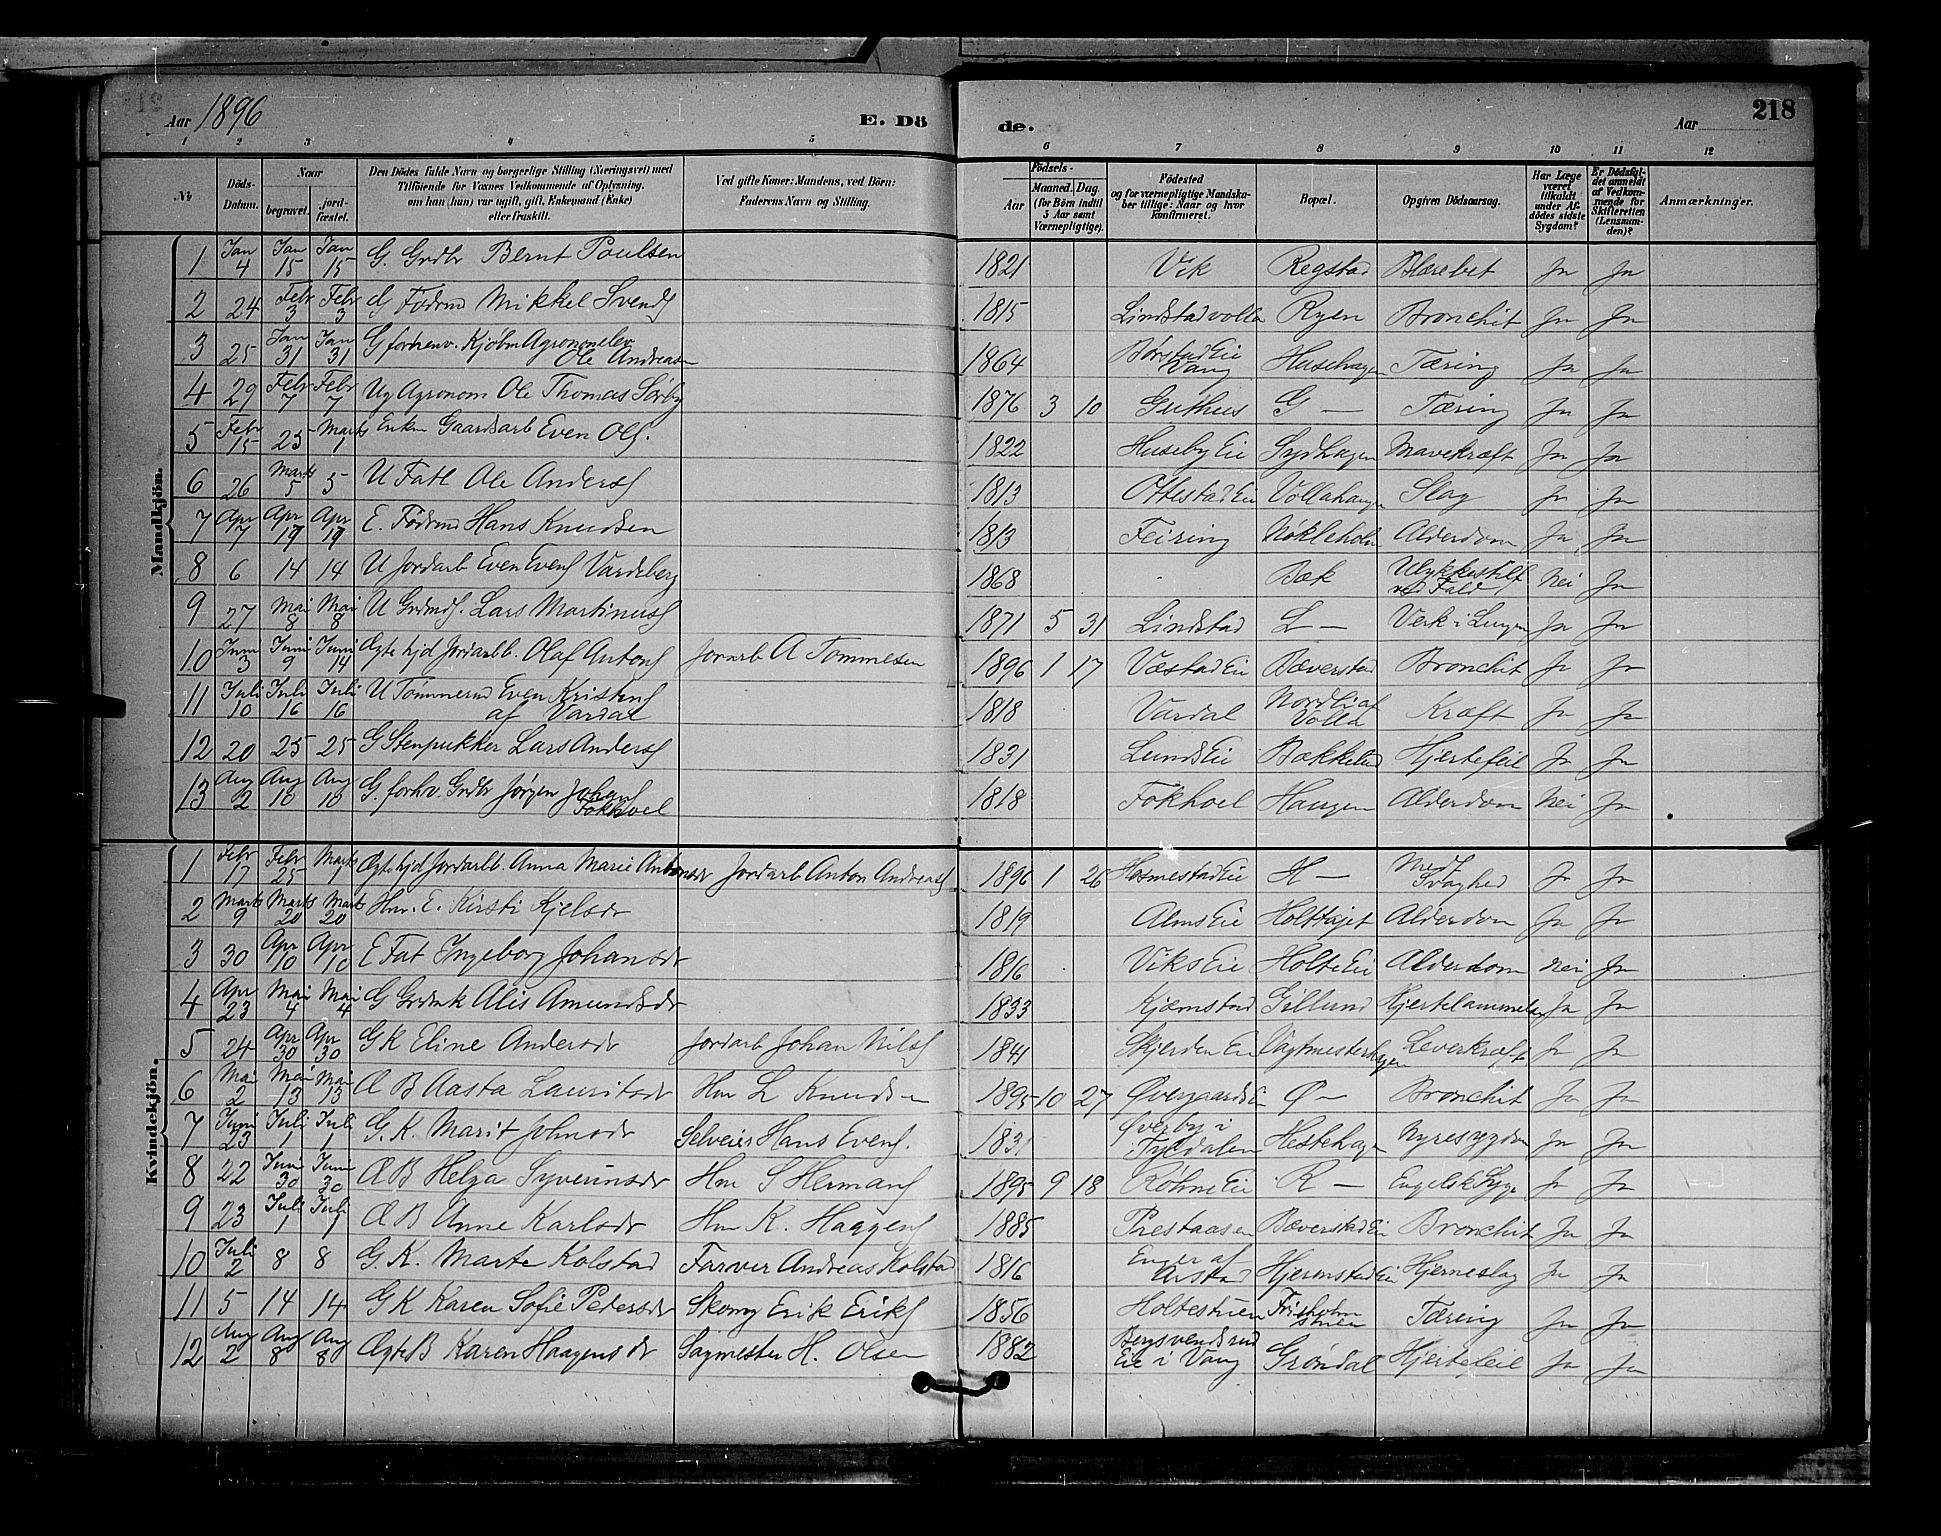 Aar 1896 E. Dö de. Aar 218
1 2 3 4 5 6 7 8 9 10 11 12
№ Döds-Datum. Naar begravet. jord-fæstet. Den Dödes fulde Navn og borgerlige Stilling (Næringsvei) med Tilföiende for Voxnes Vedkommende af Oplysning, om han (hun) var ugift, gift, Enkemand (Enke) eller fraskilt. Ved gifte Koner: Mandens, ved Börn: Faderens Navn og Stilling. Födsels- Aar Maaned. Dag. (for Börn indtil 5 Aar samt Værnepligtige). Födested og for værnepligtige Mandskaber tillige: Naar og hvor konfirmeret. Bopæl. Opgiven Dödsaarsag. Har Læge været tilkaldt under Afdödes sidste Sygdom? Er Dödsfaldet anmeldt af Vedkommende for Skifteretten (Lensmanden)? Anmærkninger.
Mandkjön.
1 Jan 4 Jan 15 Jan 15 G. Grdbr Bernt Poulsen 1821 Vik Regstad Blærebet Ja Ja
2 24 Febr 3 Febr 3 G Födrmd Mikkel Svends 1815 Lindstadvolla Ryen Bronchit Ja Ja
3 25 Jan 31 Jan 31 G forhenv. Kjøbm Agronomelev Ole Andreasen 1864 Børstad Eie Vang Husehagen Tæring Ja Ja
4 29 Febr 7 Febr 7 Ug Agronom Ole Thomas Sørby 1876 3 10 Guthus G — Tæring Ja Ja
5 Febr 15 23 Marts 1 Enkm Gaardsarb Even Ols. 1822 Huseby Eie Sydhagen Mavekræft Ja Ja
6 26 Marts 5 5 U Fatl Ole Anders 1813 Ottestad Eie Vollahaugen Slag Ja Ja
7 Apr 7 Apr 19 Apr 19 E. Födrmd Hans Knudsen 1813 Feiring Nøkleholm Alderdom Ja Ja
8 6 14 14 U Jordarb Even Evens Vardeberg 1868 Bæk Ulykkestilf ved Fald Nei Ja
9 27 Mai 8 Mai 8 U Grdmds. Lars Martinus 1871 5 31 Lindstad L — Verk i Lungen Ja Ja
10 Juni 3 Juni 9 Juni 14 Ægte hjd Jordarbb. Olaf Antons Jorarb A Tommesen 1896 1 17 Væstad Eie Bæverstad Bronchit Ja Ja
11 Juli 10 Juli 16 Juli 16 U Tømmermd Even Kristens af Vardal 1818 Vardal Nordli af Volla Kræft Ja Ja
12 20 25 25 G Stenpukker Lars Anders 1831 Lunds Eie Bækkelund Hjertefeil Ja Ja
13 Aug 2 Aug 10 Aug 10 G. forhv. Grdbr Jørgen Johans Fokhoel 1818 Fokhoel Haugen Alderdom Nei Ja
Kvindekjön.
1 Febr 17 Febr 25 Marts 1 Ægte hjd Jordarbb. Anna Marie Antonsdr Jordarb Anton Andreas 1896 1 26 Hosmestad Eie H — Medf Svaghed Ja Ja
2 Marts 9 Marts 20 Marts 20 Hm. E. Kirsti Kjelsdr 1819 Alms Eie Holttajet Alderdom Ja Ja
3 30 Apr 10 Apr 10 E Fat Ingeborg Johansdr 1816 Viks Eie Holte Eie Alderdom Nei Ja
4 Apr 23 Mai 4 Mai 4 G Grdmk Alis Amundsdr 1833 Kjæmstad Gillund Hjertelammelse Ja Ja
5 24 Apr 30 Apr 30 G K Eline Andersdr Jordarb Johan Nils 1841 Skjerden Eie Vagtmesterhagen Leverkræft Ja Ja
6 Mai 2 Mai 13 Mai 13 Æ B Aasta Lauritsdr Hm L Knudsen 1895 10 27 Øvergaards Eie Ø — Bronchit Ja Ja
7 Juni 23 Juli 1 Juli 1 G. K. Marit Johnsdr Selveier Hans Evens. 1831 Øverby i Tyldalen Hestehagen Nyresygdom Ja Ja
8 22 Juni 30 Juni 30 Æ B Helga Syverinsdr Hm S Hermans 1895 9 18 Røhne Eie R — Engelsk Syge Ja Ja
9 23 Juli 1 Juli 1 Æ B Anne Karlsdr Hm K. Haagens 1885 Prestaasen Bæverstad Eie Bronchit Ja Ja
10 Juli 2 8 8 G. K. Marte Kolstad Farver Andreas Kolstad 1816 Enger af Arstad Hjermstad Eie Hjerneslag Ja Ja
11 5 14 14 G K Karen Sofie Pedersdr Skomg Erik Eriks 1856 Holtestuen Frisholm stuen Tæring Ja Ja
12 Aug 2 Aug 8 Aug 8 Ægte B Karen Haagensdr Sagmester H. Olsen 1882 Bergsvendsrud Eie i Vang Grøndal Hjertefeil Ja Ja